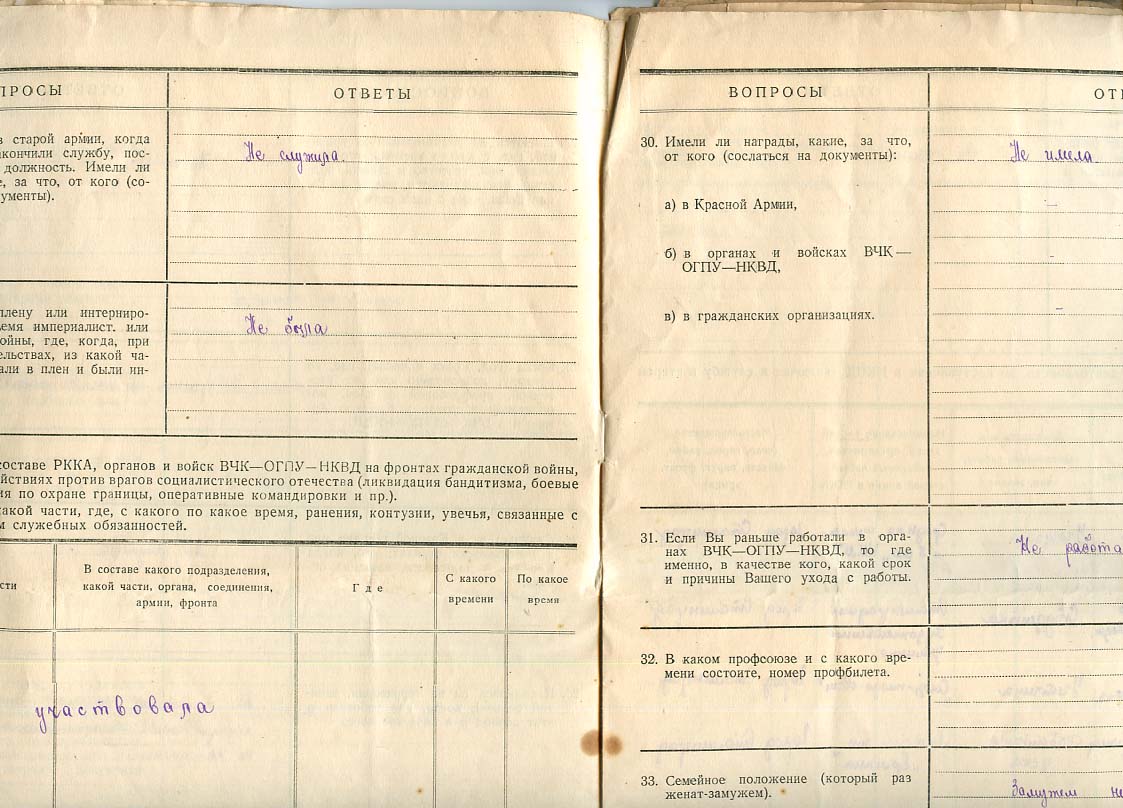 ПРОСЫ
ОТВЕТЫ
в старой армии, когда
акончили службу, пос-
должность. Имели ли
е, за что, от кого (со-
ументы).
Не служила.
плену или интерниро-
емя империалист. или
ойны, где, когда, при
ельствах, из какой ча-
али в плен и были ин-
Не была
составе РККА, органов и войск ВЧК—ОГПУ—НКВД на фронтах гражданской войны,
йствиях против врагов социалистического отечества (ликвидация бандитизма, боевые
ия по охране границы, оперативные командировки и пр.).
акой части, где, с какого по какое время, ранения, контузии, увечья, связанные с
м служебных обязанностей.
сти
В составе какого подразделения,
какой части, органа, соединения,
армии, фронта
Где
С какого
времени
По какое
время
участвовала
ВОПРОСЫ
ОТ
30. Имели ли награды, какие, за что,
от кого (сослаться на документы):
Не имела
а) в Красной Армии,
—
б) в органах и войсках ВЧК—
ОГПУ—НКВД,
-
в) в гражданских организациях.
–
31. Если Вы раньше работали в орга-
нах ВЧК—ОГПУ—НКВД, то где
именно, в качестве кого, какой срок
и причины Вашего ухода с работы.
Не работа
32. В каком профсоюзе и с какого вре-
мени состоите, номер профбилета.
33. Семейное положение (который раз
женат-замужем).
Замужем не